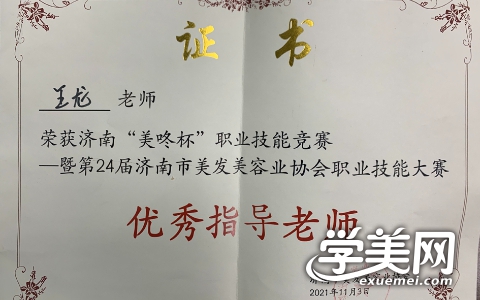 证书
王龙 老师
荣获济南“美咚杯”职业技能竞赛
—暨第24届济南市美发美容业协会职业技能大赛
优秀指导老师
学美网
exuemei.com
2021年11月3日